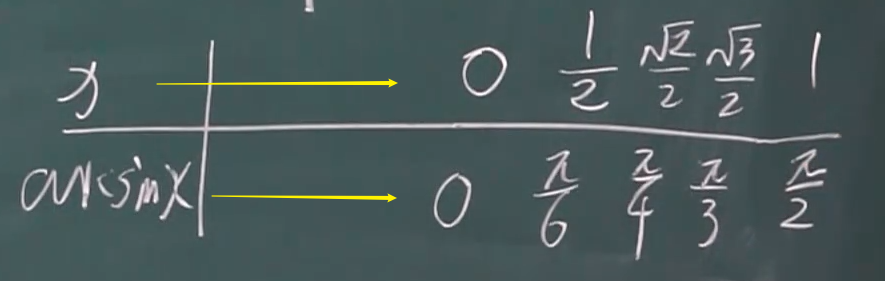 x 0 1/2 √2/2 √3/2 1
arcsinx 0 π/6 π/4 π/3 π/2